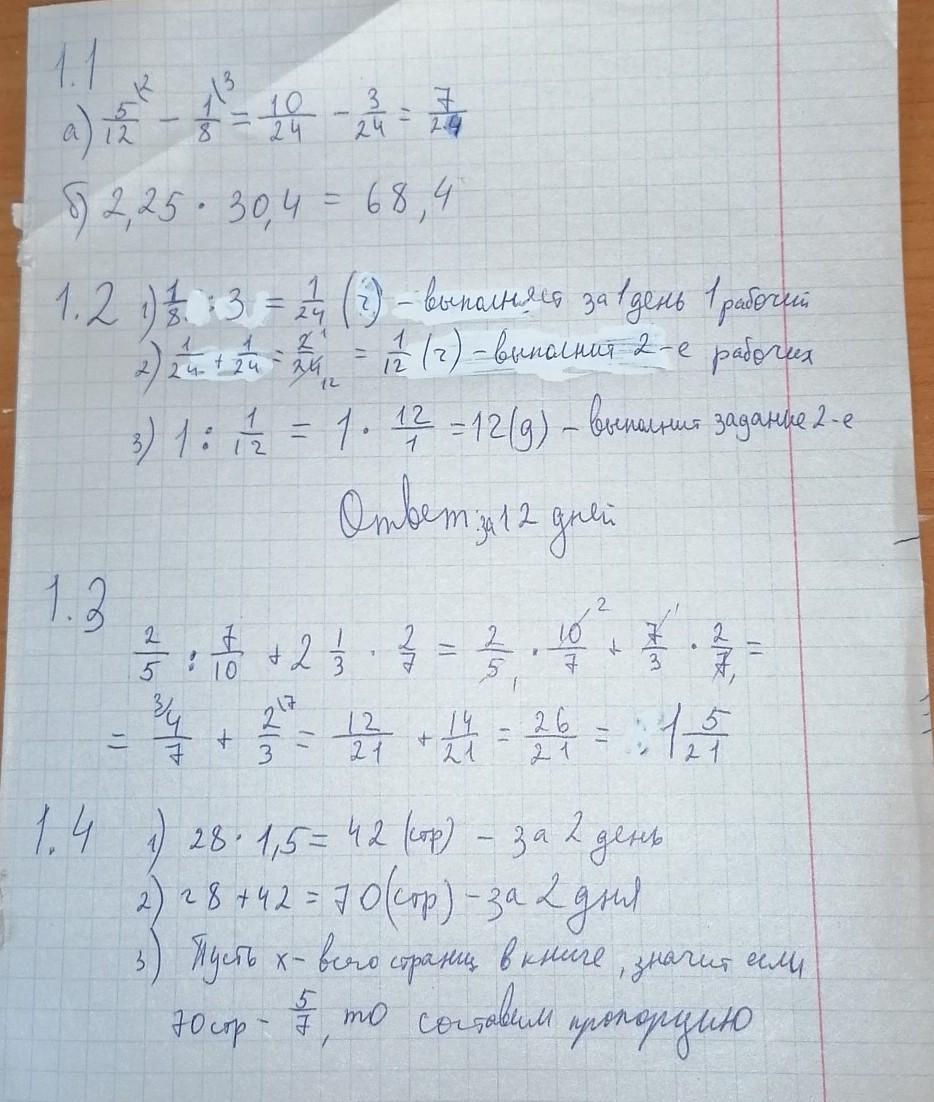 1.1
а) 5/12 \2 - 1/8 \3 = 10/24 - 3/24 = 7/24
б) 2,25 · 30,4 = 68,4
1.2 1) 1/8 : 3 = 1/24 (г) – выполняет за 1 день 1 рабочий
2) 1/24 + 1/24 = 2/24 1 12 = 1/12 (г) – выполнит 2-е рабочих
3) 1 : 1/12 = 1 · 12/1 = 12(д) – выполнит задание 2-е
Ответ: за 12 дней
1.3
2/5 : 7/10 + 2 1/3 · 2/7 = 2/5 1 · 10/7 2 + 7/3 1 · 2/7 1 =
= 3/ 4/7 + 2/3 \7 = 12/21 + 14/21 = 26/21 = 1 5/21
1.4 1) 28 · 1,5 = 42 (стр) – за 2 день
2) 28 + 42 = 70(стр) – за 2 дня
3) Пусть x – всего страниц в книге, значит если
70стр – 5/7, то составим пропорцию